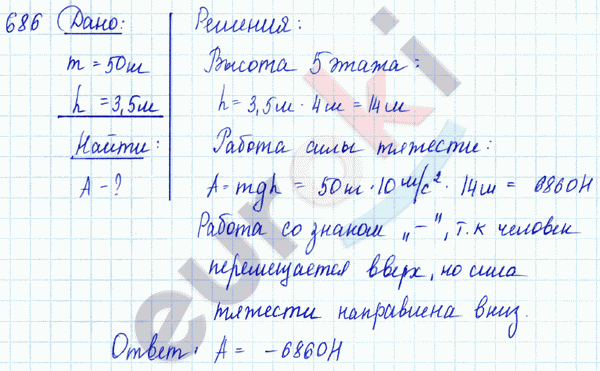 686 Дано:
m = 50т
h = 3,5м
Найти:
A - ?
Решения:
Высота 5 этажа:
h = 3,5м · 4м = 14м
Работа силы тяжести:
A = mgh = 50т · 10 м/с² · 14м = 6860Н
Работа со знаком „–", т.к человек
перемещается вверх, но сила
тяжести направлена вниз.
Ответ: A = -6860Н
euroki